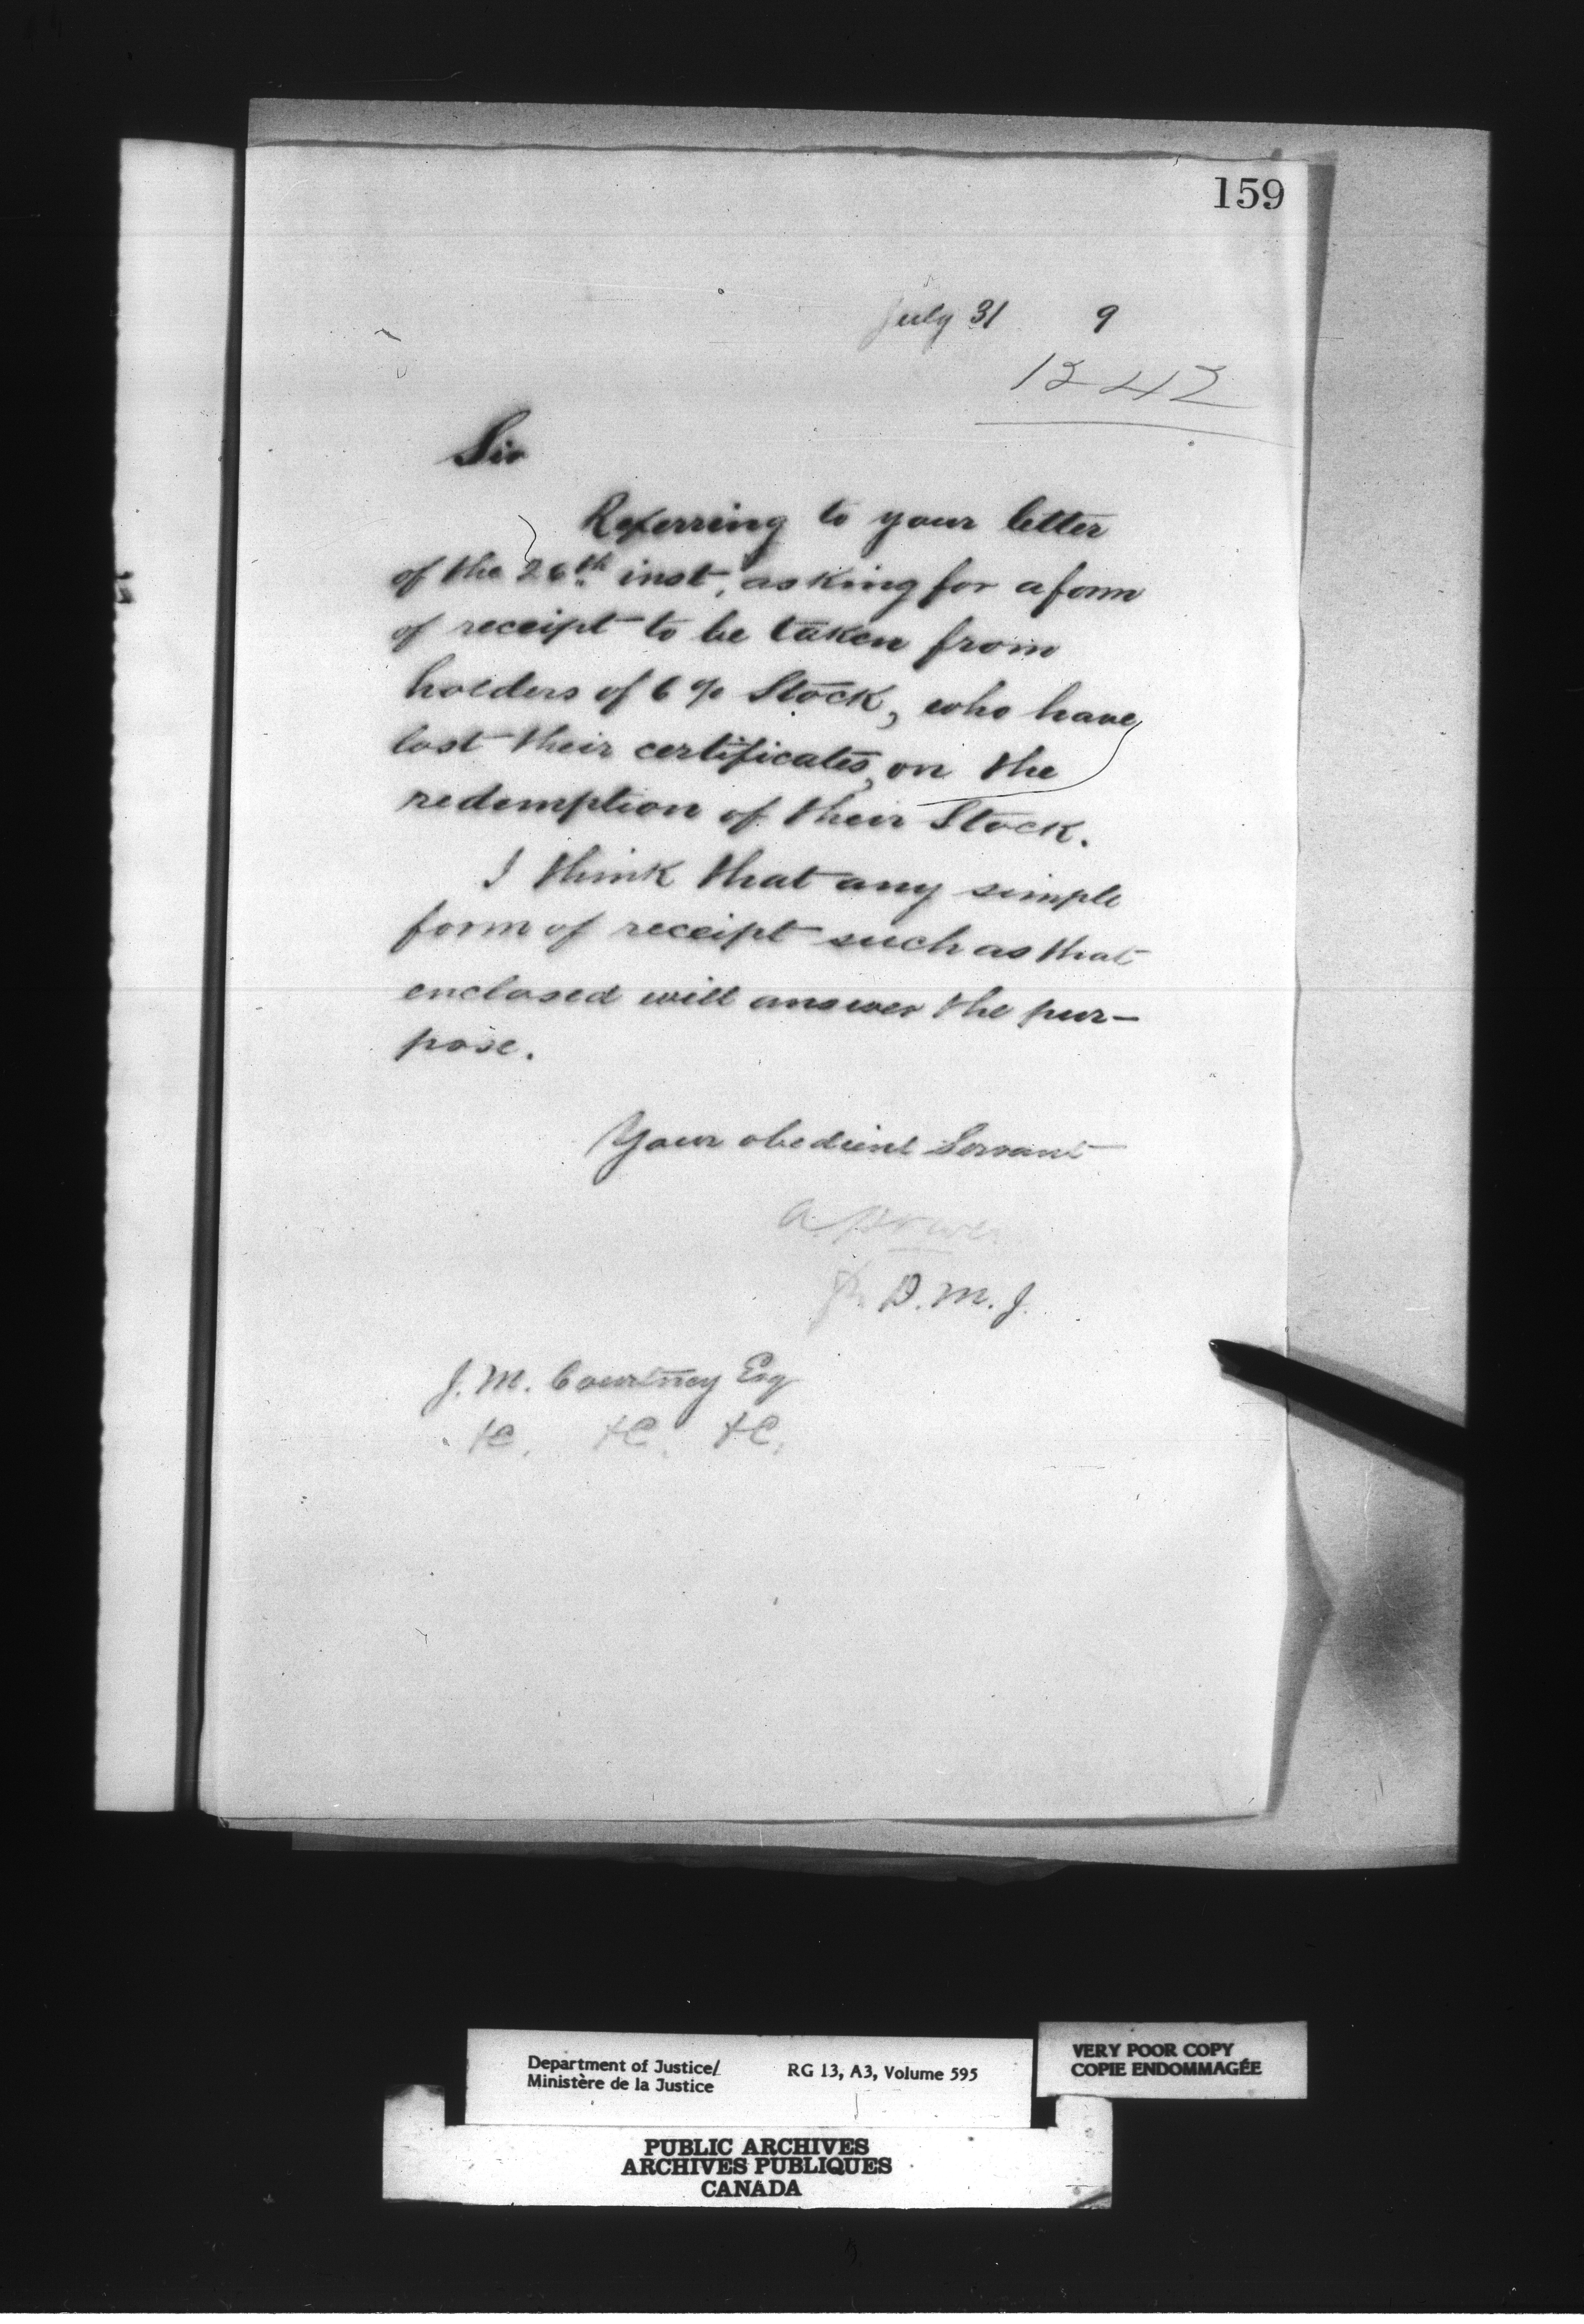 159
July 31 9
1342
Sir
Referring to your letter
of the 26th inst, asking for a form
of receipt to be taken from
holders of 6 % Stock, who have
lost their certificates, on the
redemption of their Stock.
I think that any simple
form of receipt such as that
enclosed will answer the pur-
pose.
Your obedient Servant
A Power
D. M. J.
J. M. Courtney Esq
&c. &c. &c.
Department of Justice/ RG 13, A3, Volume 595
Ministère de la Justice
VERY POOR COPY
COPIE ENDOMMAGÉE
PUBLIC ARCHIVES
ARCHIVES PUBLIQUES
CANADA